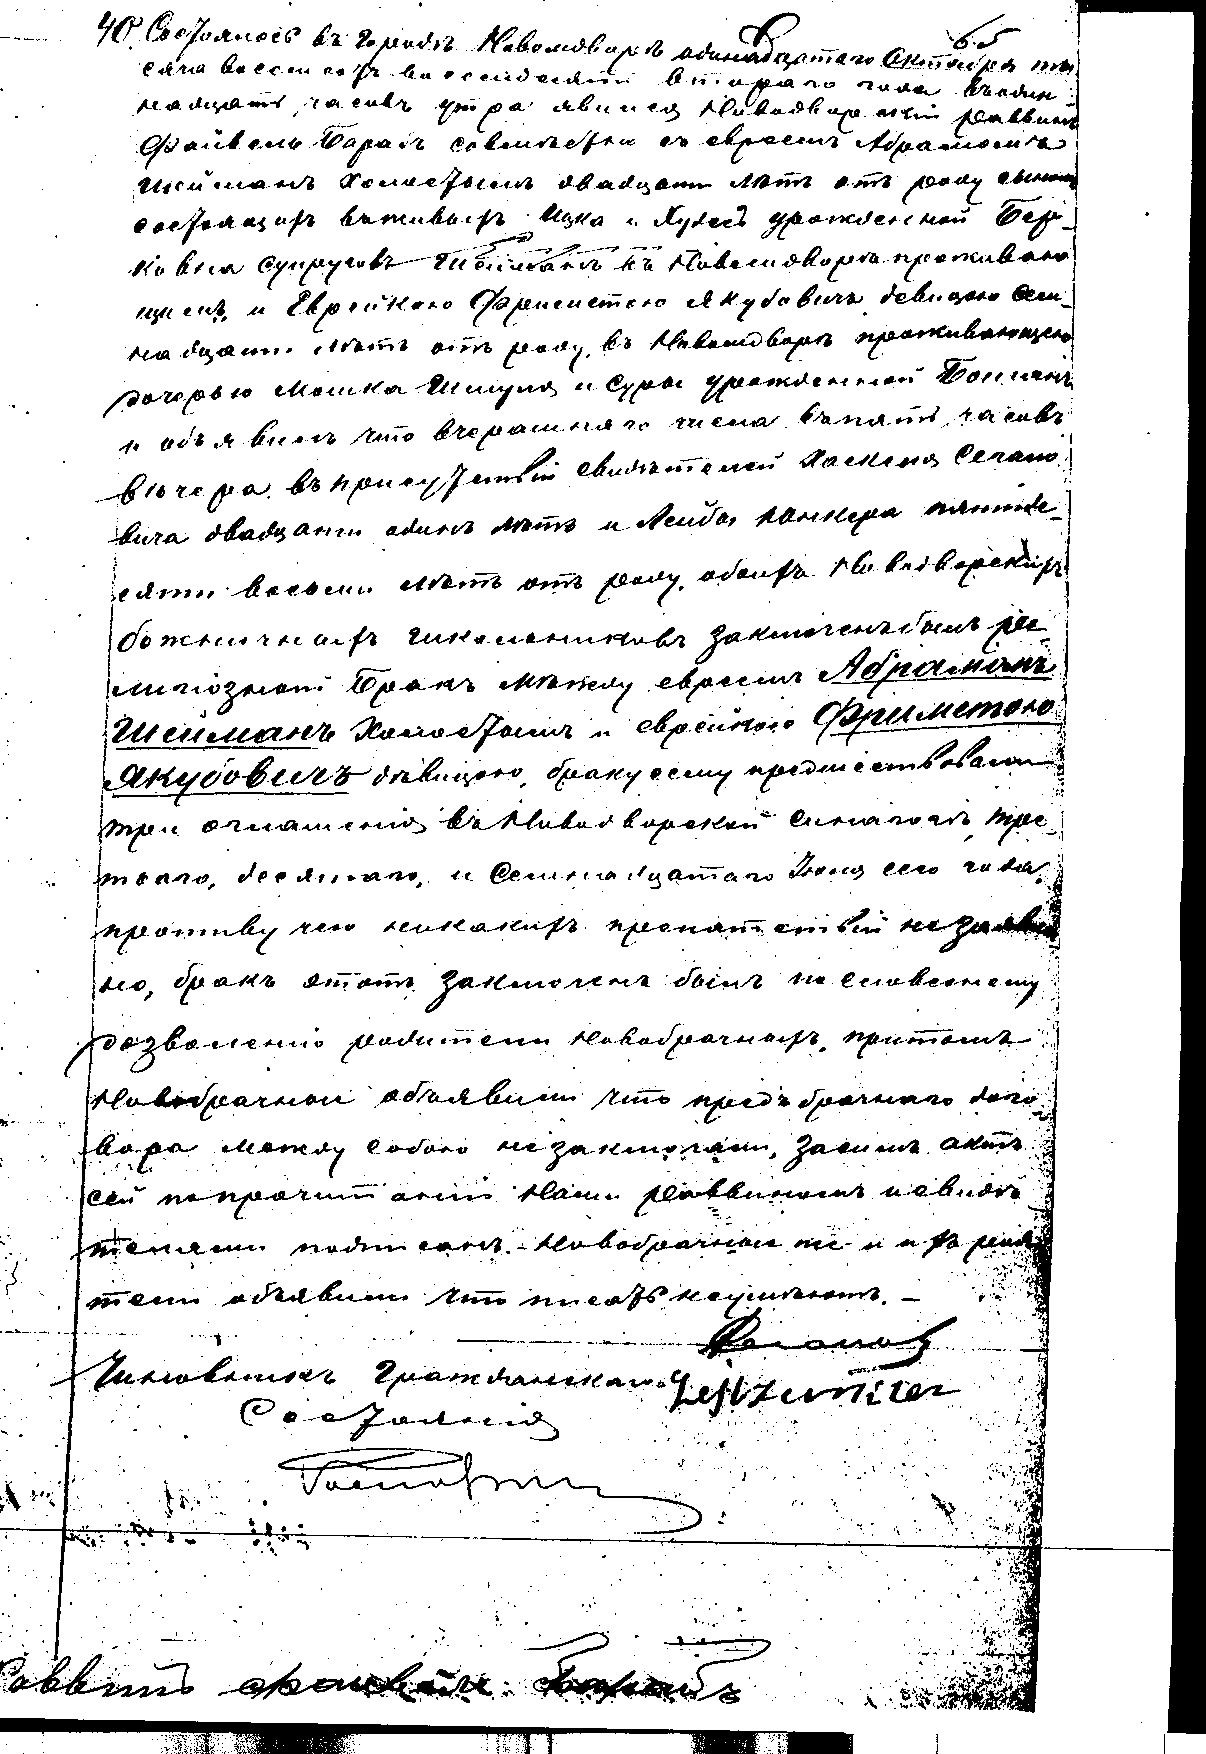 65
40. Состоялось въ городѣ Новомдворѣ одинадцатаго Октября ты
сяча восемсотъ восемдесятъ втораго года въ один
надцать часовъ утра явился Новодворскій Раввинъ
Файвель Барабъ совмѣстно съ евреемъ Абрамомъ
Шейманъ холостымъ двадцати лѣтъ отъ роду сыномъ
состоящихъ въ живыхъ Ицка и урожденной Бер
ковна супруговъ Шейманъ въ Новомдворѣ проживаю
щимъ, и Еврейкою Фриметою Якубовичъ девицею Сем
надцати лѣтъ отъ роду, въ Новомдворѣ проживающею
дочерью Мошка Шмуля и Суры урожденной
и объявилъ что вчерашняго числа въ пять часовъ
вечера, въ присутствіи свидѣтелей Хаскеля Селано
вича двадцати одинъ лѣтъ и Лейбы Юнкера пятиде
сяти восьми лѣтъ отъ роду, обоихъ Новодворскихъ
божничныхъ школьниковъ заключенъ былъ ре
лигіозный Бракъ между евреемъ Абрамомъ
Шейманъ Холостымъ и еврейкою Фриметою
Якубовичъ дѣвицею, браку сему предшествовали
три оглашенія въ Новодворской Синагогѣ, тре
тьяго, десятаго, и Семнадцатаго Іюня сего года,
противу чего никакихъ препятствій не заявле
но, бракъ этотъ заключенъ былъ по словесному
дозволенію родители новобрачныхъ, притомъ
Новобрачные объявили что предъ брачнаго дого
вора между собою не заключали, засимъ актъ
сей по прочитаніи Нами Раввиномъ и свидѣ
телями подписанъ. Новобрачные же и ихъ роди
тели объявили что писать не умѣютъ. —
Чиновникъ Гражданскаго
Состоянія
Раввинъ Файвель Барабъ